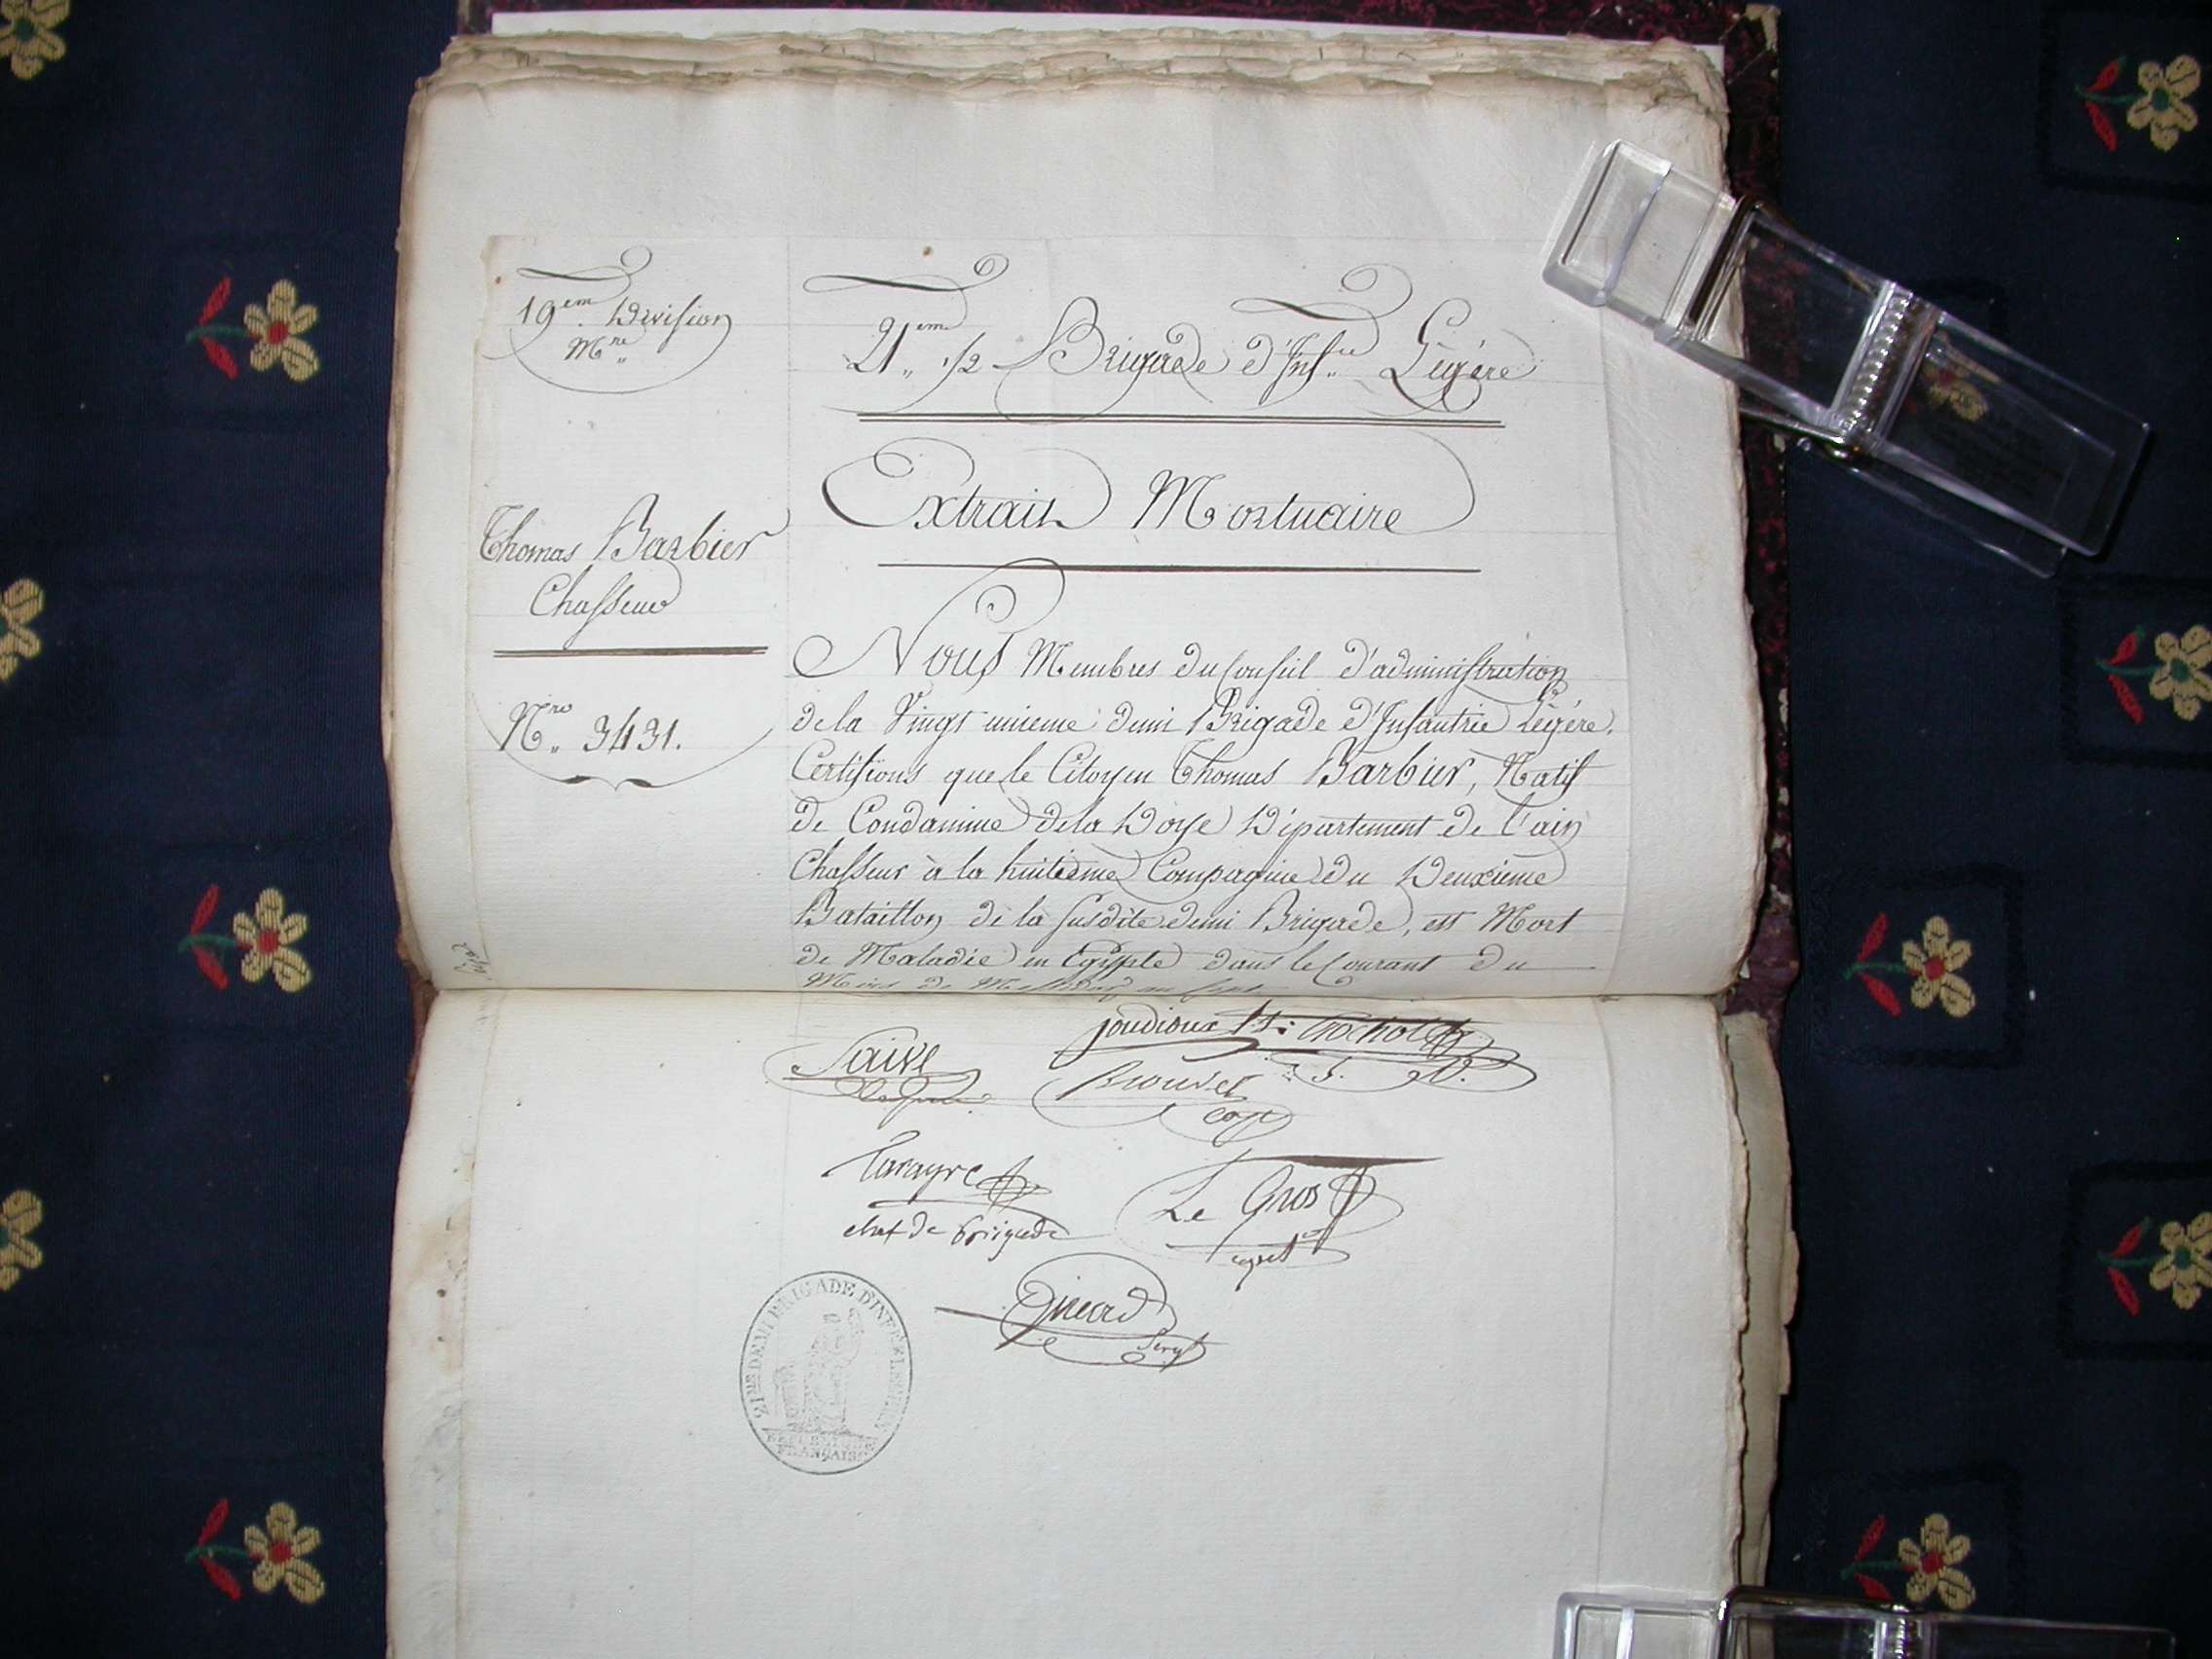 19em. Division
Mre
21em. 1/2 Brigade d'Infie Légère
Extrait Mortuaire
Thomas Barbier
Chasseur
Nro 3431.
Nous Membres du Conseil d'administration
de la Vingt unieme demi Brigade d'Infantrie Légére.
Certifions que le Citoyen Thomas Barbier, Natif
de Condamine de la Doye Département de l'ain
Chasseur à la huitième Compagnie du Deuxième
Bataillon de la susdite demi Brigade, est Mort
de Maladie en Egypte dans le Courant du
Mois de Messidor an sept
Brouvet
Capt
Tarayre
chef de Brigade
Le Gros
Girard
Sergt
21me DEMI BRIGADE D'INFRIE LEGERE
REPUBLIQUE
FRANÇAISE